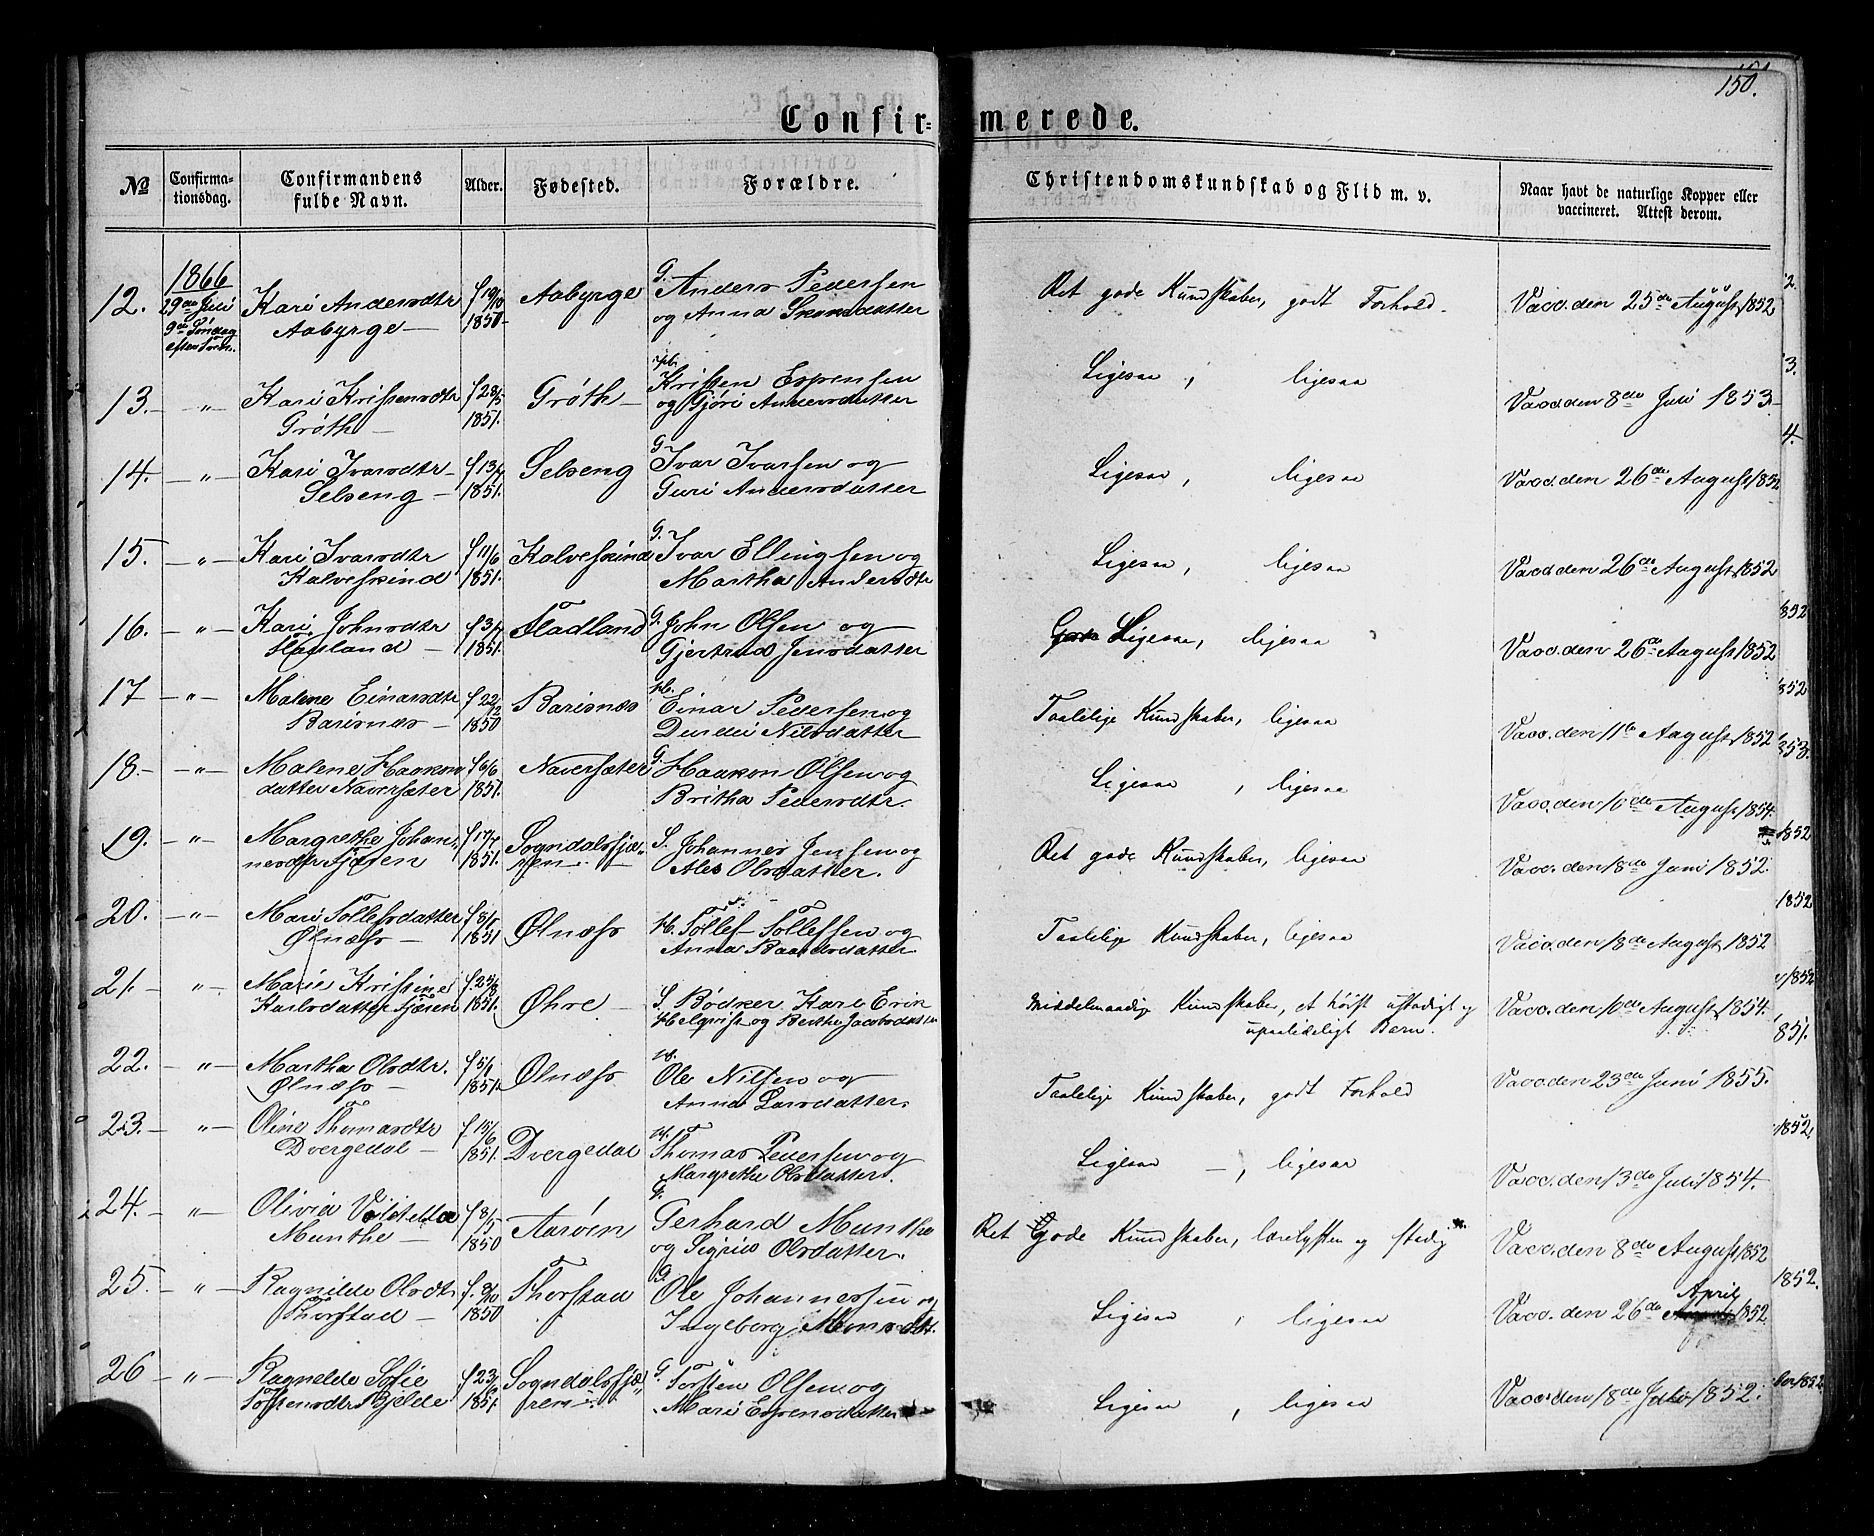 150.
Confir=
merede.
No
Confirma-
tionsdag.
Confirmandens
fulde Navn.
Alder.
Fødested.
Forældre.
Christendomskundskab og Flid m. v.
Naar havt de naturlige Kopper eller
vaccineret. Attest derom.
12. 1866 29de Juli 9de Søndag efter Kari Andersdtr Aabyrge — f 19/10 1850 Aabyrge G. Anders Pedersen og Anna datter Ret gode Kundskaber, godt Forhold. Vacc. den 25de August 1852
13. — " — Kari Kristensdtr Grøth — f 28/5 1851. Grøth — Kristen Espensen og Gjøri Andersdatter Ligesaa, ligesaa Vacc den 8de Juli 1853.
14. — " — Kari Ivarsdtr Selseng — f 13/7 1851. Selseng G. Ivar Ivarsen og Guri Andersdatter Ligesaa, ligesaa Vacc. den 26de August 1852
15. — " — Kari Ivarsdtr Kalveskind f 11/6 1851. Kalveskind G. Ivar Ellingsen og Martha Andersdtr Ligesaa, ligesaa Vacc den 26de August 1852
16. — " — Kari Johnsdtr Fladland — f 3/7 1851. Fladland G. John Olsen og Gjertrud Jensdatter Ligesaa, ligesaa Vacc. den 26de August 1852
17 — " — Malene Einarsdtr Barisnæs — f 22/12 1850 Barisnæs Einar Pedersen og Durdei Nilsdatter Taalelige Kundskaber, ligesaa Vacc. den 11te August 1852
18. — " — Malene Haakons datter Naversæter f 6/6 1851. Naversæter G. Haakon Olsen og Britha Pedersdtr. Ligesaa, ligesaa Vacc. den 10de August 1854.
19. — " — Margrethe Johan- nesdtr Fjæren f 17/7 1851. Sogndalsfjæ- ren S. Johannes Jensen og Ales Olsdatter. Ret gode Kundskaber, ligesaa Vacc. den 18de Juni 1852.
20. — " — Mari Tollefsdatter Ølnæss — f 8/5 1851 Ølnæss H. Tollef Tollefsen og Anna Baardsdatter. Taalelige Kundskaber, ligesaa Vacc. den 18de August 1852
21. — " — Marie Kristine Karlsdatter Fjæren 1851. Øhre — S. Bødker Karl Erik og Berthe Jacobsdatter Middelmaadige Kundskaber, et høist ustadigt og upaalideligt Barn. Vacc den 10de August 1854.
22. — " — Martha Olsdtr. Ølnæss — f 5/1 1851. Ølnæss Ole Nilsen og Anna Larsdatter. Taalelige Kundskaber, godt Forhold Vacc. den 23de Juni 1855.
23. — " — Oline Thomasdtr Dvergedal — f. 15/6 1851. Dvergedal Thomas Pedersen og Margrethe Olsdatter. Ligesaa —, ligesaa Vacc. den 13de Juli 1854.
24. — " — Olivia Munthe — f 8/5 1850 Aarøien G. Gerhard Munthe og Sigrid Olsdatter. Ret Gode Kundskaber, lærelysten og stadig Vacc. den 8de August 1852
25. — " — Ragnilde Olsdtr Thorstad — f. 9/10 1850 Thorstad G Ole Johannessen og Ingeborg Monsdtr. Ligesaa, ligesaa Vacc. den 26de April 1852
26 — " — Ragnilde Sofie Torstensdtr Bjelde f 23/6 1851. Sogndalsfjæ- ren G. Torsten Olsen og Mari Espensdatter Ligesaa, ligesaa Vacc. den 18de Juli 1852.
2.
3.
4.
852
852
853.
1852
1852
1852
851.
1852.
1852.